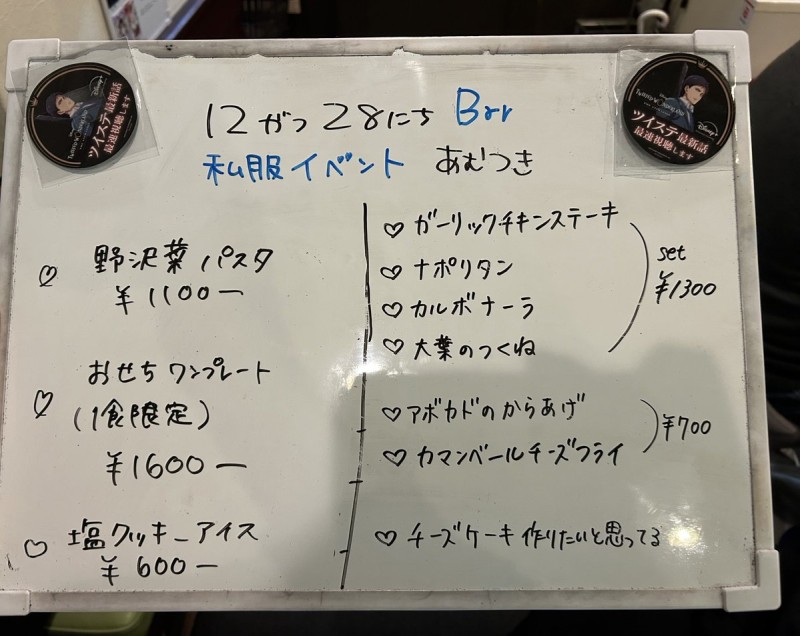 12がつ28にち Bar
私服イベント あむつき
♡ 野沢菜パスタ
¥1100ー
♡ おせちワンプレート
(1食限定)
¥1600ー
♡ 塩クッキーアイス
¥600ー
♡ ガーリックチキンステーキ
♡ ナポリタン
♡ カルボナーラ
♡ 大葉のつくね
set
¥1300
♡ アボカドのからあげ
♡ カマンベールチーズフライ
¥700
♡ チーズケーキ作りたいと思ってる
Disney+
ツイステ最新話
最速視聴します
Disney+
ツイステ最新話
最速視聴します